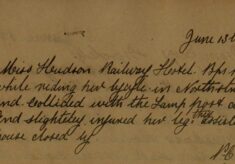 June 13th
Miss Hewdson Railway Hotel Bps
while riding her bycyle in North
and collided with the Lamp post
and slightely injured her leg.
house closed by
PC